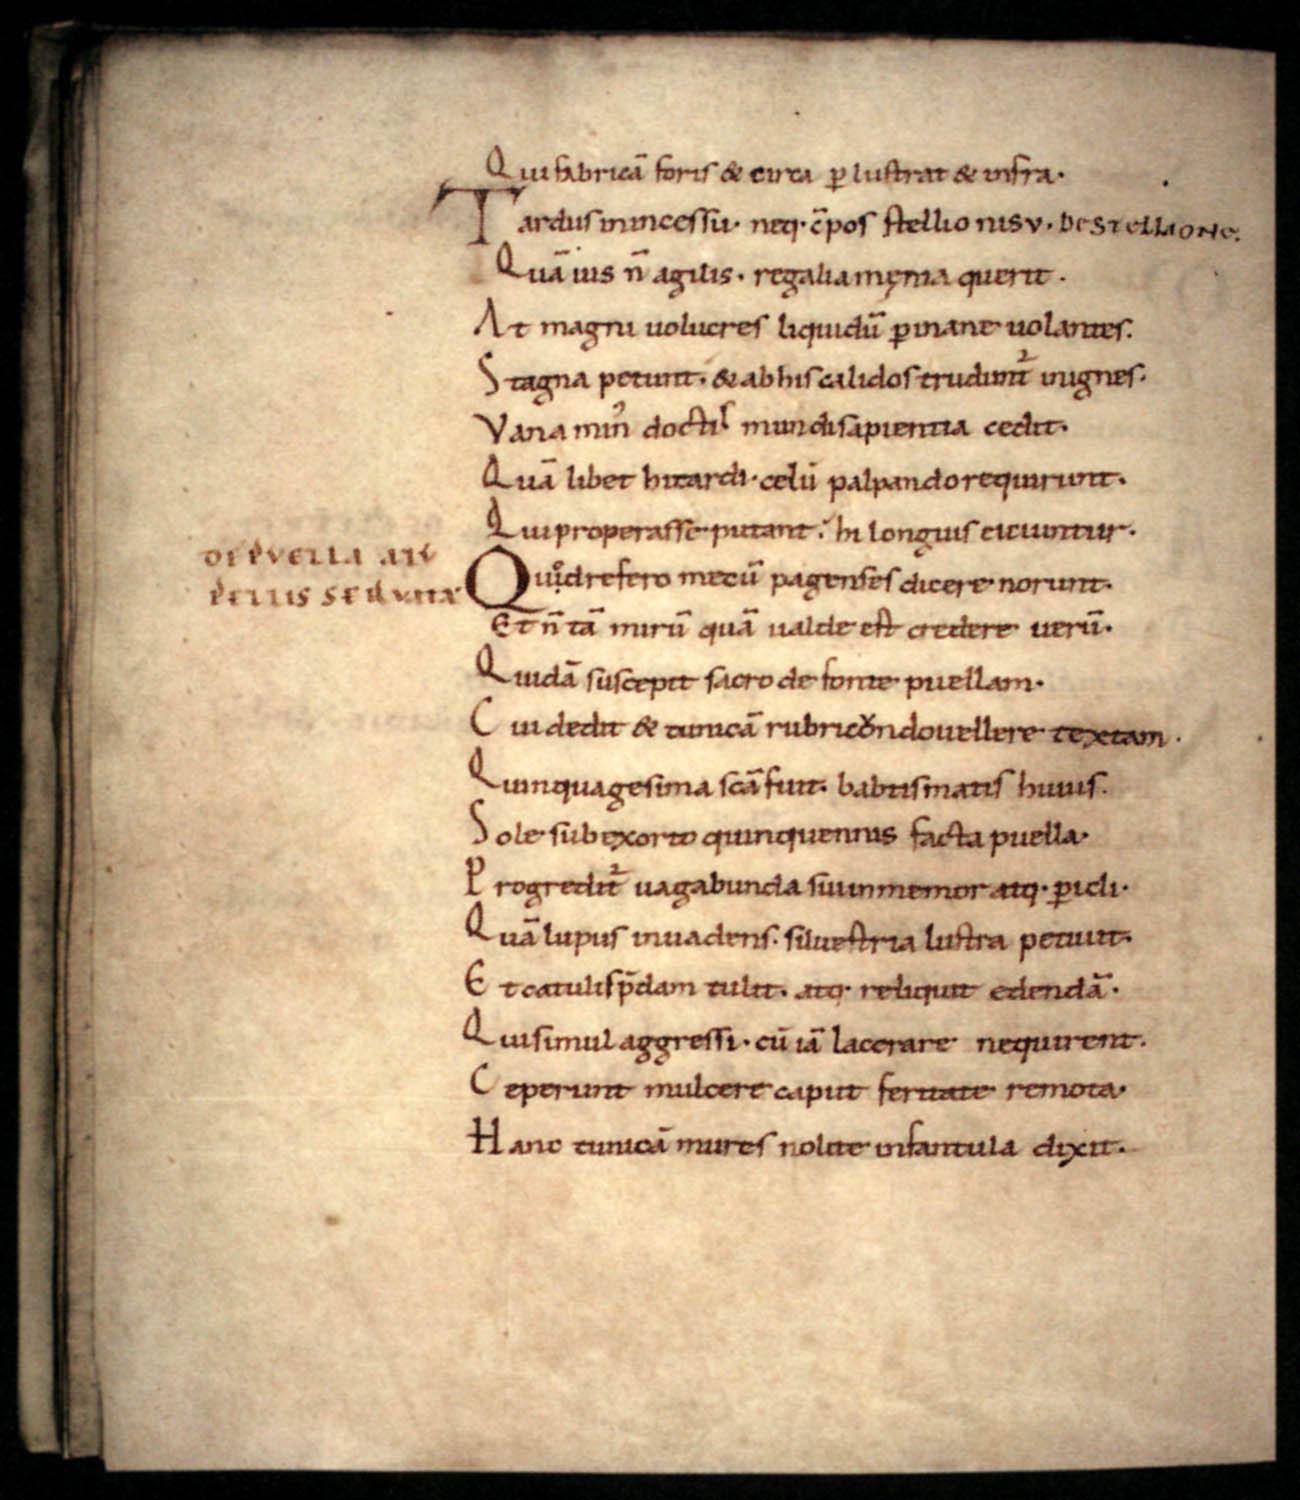 Qui fabricā foris & circa ꝑ lustrat & infra.
Tardus in incessu. neq. c̄pos stellio nisv. DE STELLIONE.
Quāuis n̄ agilis. regalia męnia querit.
At magni uolucres liquidū ꝑ inane uolantes.
Stagna petunt. & ab his calidos trudunt᷑ in ignes.
Vana minꝰ doctis mundi sapientia cedit.
Quālibet hi tardi. celū palpando requirunt.
Qui properasse putant. hi longius eiciuntur.
DE PVELLA A LV
PELLIS SERVATA
Quod refero mecū pagenses dicere norunt.
Et n̄ tā mirū quā ualde est credere uerū.
Quidā suscepit sacro de fonte puellam.
Cui dedit & tunicā rubricundo uellere textam.
Quinquagesima scā fuit. babtismatis huius.
Sole sub exorto quinquennis facta puella.
Progredit᷑ uagabunda sui inmemor atq. ꝑicli.
Quā lupus inuadens. siluestria lustra petiuit.
Et catulis p̄dam tulit. atq. reliquit edendā.
Qui simul aggressi. cū iā lacerare nequirent.
Ceperunt mulcere caput feritate remota.
Hanc tunicā mures nolite infantula dixit.